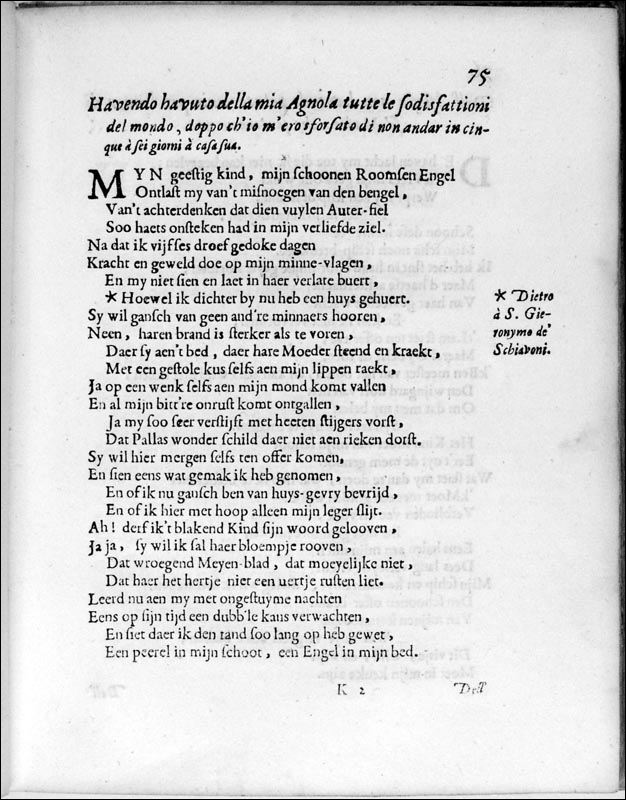 75
Havendo havuto della mia Agnola tutte le sodisfattioni
del mondo, doppo ch'io m'ero sforsato di non andar in cin-
que à sei giorni à casa sua.
MYN geestig kind, mijn schoonen Roomsen Engel
Ontlast my van't misnoegen van den bengel,
Van't achterdenken dat dien vuylen Auter-fiel
Soo haets onsteken had in mijn verliefde ziel.
Na dat ik vijfses droef gedoke dagen
Kracht en geweld doe op mijn minne-vlagen,
En my niet sien en laet in haer verlate buert,
* Hoewel ik dichter by nu heb een huys gehuert.
Sy wil gansch van geen and're minnaers hooren,
Neen, haren brand is sterker als te voren,
Daer sy aen't bed, daer hare Moeder steend en kraekt,
Met een gestole kus selfs aen mijn lippen raekt,
Ja op een wenk selfs aen mijn mond komt vallen
En al mijn bitt're onrust komt ontgallen,
Ja my soo seer verstijft met heeten stijgers vorst,
Dat Pallas wonder schild daer niet aen rieken dorst.
Sy wil hier mergen selfs ten offer komen,
En sien eens wat gemak ik heb genomen,
En of ik nu gansch ben van huys-gevry bevrijd,
En of ik hier met hoop alleen mijn leger slijt.
Ah! derf ik't blakend Kind sijn woord gelooven,
Ja ja, sy wil ik sal haer bloempje rooven,
Dat wroegend Meyen-blad, dat moeyelijke niet,
Dat haer het hertje niet een uertje rusten liet.
Leerd nu aen my met ongestuyme nachten
Eens op sijn tijd een dubb'le kans verwachten,
En siet daer ik den tand soo lang op heb gewet,
Een peerel in mijn schoot, een Engel in mijn bed.
* Dietro
à S. Gie-
ronymo de'
Schiavoni.
K 2
Dell'